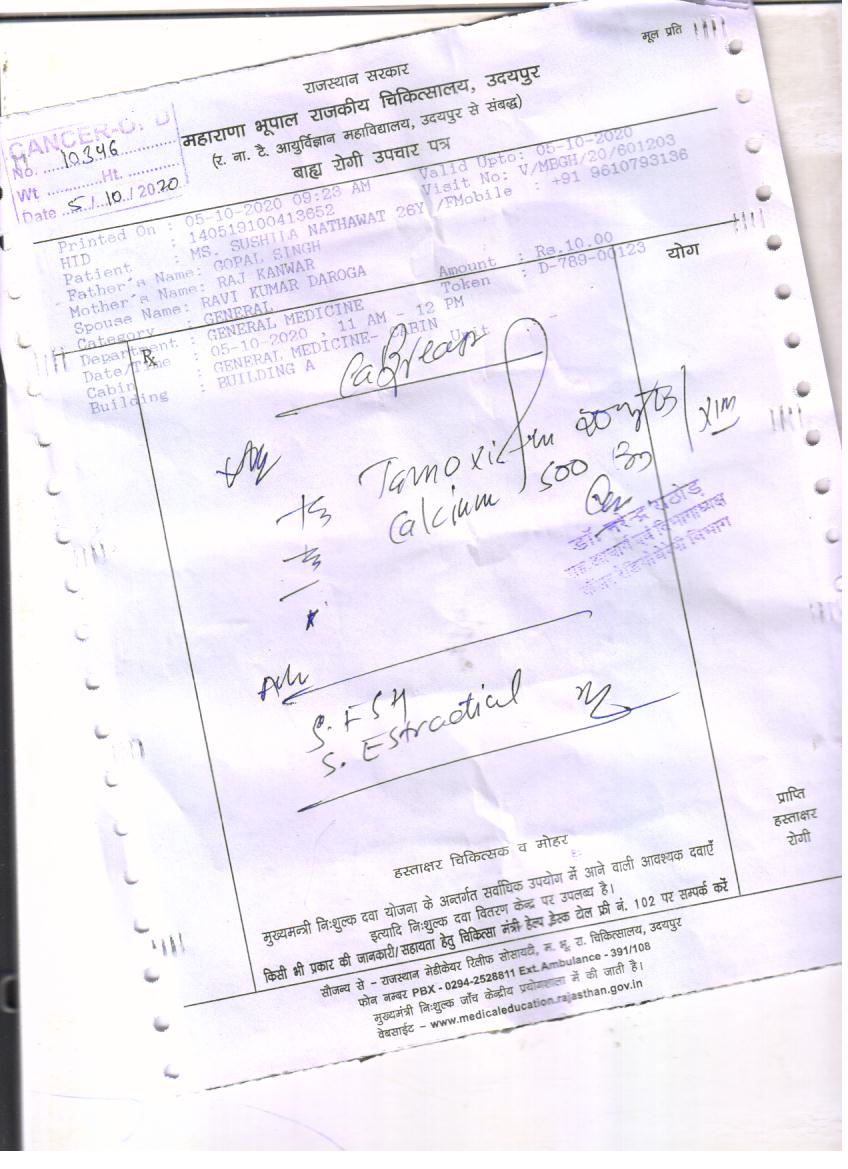 मूल प्रति
राजस्थान सरकार
महाराणा भूपाल राजकीय चिकित्सालय, उदयपुर
(र. ना. टै. आयुर्विज्ञान महाविद्यालय, उदयपुर से संबद्ध)
बाह्य रोगी उपचार पत्र
CANCER-O.
No. 10346
Wt Ht.
Date 5/10/2020
Printed On : 05-10-2020 09:23 AM Valid Upto: 05-10-2020
HID : 140519100413652 Visit No: V/MBGH/20/601203
Patient : MS. SUSHILA NATHAWAT 26Y /F Mobile : +91 9610793136
Father's Name: GOPAL SINGH
Mother's Name: RAJ KANWAR
Spouse Name: RAVI KUMAR DAROGA Amount : Rs.10.00
Category : GENERAL Token : D-789-00123
योग
Department : GENERAL MEDICINE
Date/Time : 05-10-2020 , 11 AM - 12 PM
Cabin : GENERAL MEDICINE- CABIN Unit -
Building : BUILDING A
Rx
Ca Breast
Tamoxifen 20 mg
x1m
Calcium 500
डॉ. नरेन्द्र राठौड़
Adv
S. FSH
S. Estradial
प्राप्ति
हस्ताक्षर
रोगी
हस्ताक्षर चिकित्सक व मोहर
मुख्यमन्त्री निःशुल्क दवा योजना के अन्तर्गत सर्वाधिक उपयोग में आने वाली आवश्यक दवाएँ
इत्यादि निःशुल्क दवा वितरण केन्द्र पर उपलब्ध है।
किसी भी प्रकार की जानकारी/सहायता हेतु चिकित्सा मंत्री हेल्प डेस्क टोल फ्री नं. 102 पर सम्पर्क करें
सौजन्य से - राजस्थान मेडीकेयर रिलीफ सोसायटी, म. भू. रा. चिकित्सालय, उदयपुर
फोन नम्बर PBX - 0294-2528811 Ext. Ambulance - 391/108
मुख्यमंत्री निःशुल्क जाँच केन्द्रीय प्रयोगशाला में की जाती है।
वेबसाईट - www.medicaleducation.rajasthan.gov.in